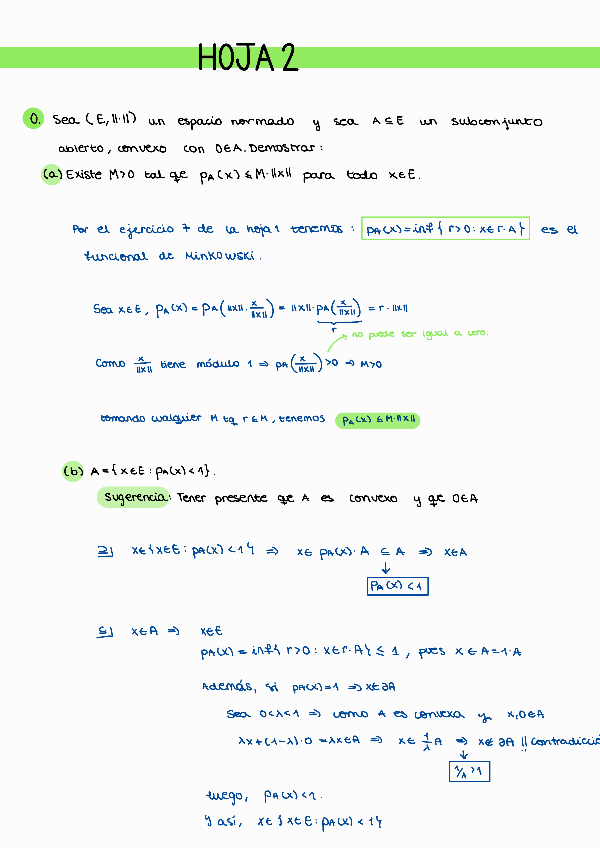 HOJA 2
0. Sea (E, ||·||) un espacio normado y sea A ⊆ E un subconjunto
abierto, convexo con 0∈A. Demostrar:
(a) Existe M>0 tal que pA(x) ≤ M·||x|| para todo x∈E.
Por el ejercicio 7 de la hoja 1 tenemos: pA(x)=inf{ r>0: x∈r·A} es el
funcional de Minkowski.
Sea x∈E, pA(x) = pA(||x||· x/||x||) = ||x||·pA(x/||x||) = r·||x||
r
no puede ser igual a cero.
Como x/||x|| tiene módulo 1 ⇒ pA(x/||x||) >0 ⇒ M>0
tomando cualquier M tq r ≤ M, tenemos pA(x) ≤ M·||x||
(b) A={x∈E: pA(x)<1}.
Sugerencia: Tener presente que A es convexo y que 0∈A
⊇| x∈{x∈E: pA(x)<1} ⇒ x∈ pA(x)·A ⊆ A ⇒ x∈A
↓
pA(x) <1
⊆| x∈A ⇒ x∈E
pA(x) = inf{ r>0: x∈r·A} ≤ 1, pues x∈A=1·A
Además, si pA(x)=1 ⇒ x∈∂A
Sea 0<λ<1 ⇒ como A es convexa y x,0∈A
λx+(1-λ)·0 =λx∈A ⇒ x∈ 1/λ A ⇒ x∉ ∂A !! contradicció
↓
1/λ >1
luego, pA(x)<1.
Y así, x∈{x∈E: pA(x)<1}